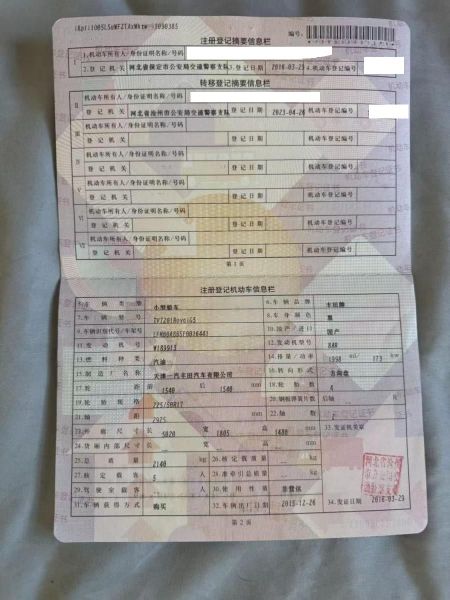 编号:
注册登记摘要信息栏
Ⅰ 1.机动车所有人/身份证明名称/号码
2.登记机关 河北省保定市公安局交通警察支队 3.登记日期 2016-03-23 4.机动车登记编号
转移登记摘要信息栏
Ⅱ 机动车所有人/身份证明名称/号码
登记机关 河北省沧州市公安局交通警察支队 登记日期 2023-04-26 机动车登记编号
Ⅲ 机动车所有人/身份证明名称/号码
登记机关 登记日期 机动车登记编号
Ⅳ 机动车所有人/身份证明名称/号码
登记机关 登记日期 机动车登记编号
Ⅴ 机动车所有人/身份证明名称/号码
登记机关 登记日期 机动车登记编号
Ⅵ 机动车所有人/身份证明名称/号码
登记机关 登记日期 机动车登记编号
Ⅶ 机动车所有人/身份证明名称/号码
登记机关 登记日期 机动车登记编号
第1页
注册登记机动车信息栏
5.车辆类型 小型轿车 6.车辆品牌 丰田牌
7.车辆型号 8.车身颜色 黑
9.车辆识别代号/车架号 10.国产/进口 国产
11.发动机号 12.发动机型号 8AR
13.燃料种类 汽油 14.排量/功率 1998 ml/ 173 kw
15.制造厂名称 天津一汽丰田汽车有限公司 16.转向形式 方向盘
17.轮距 前 1540 后 1540 mm 18.轮胎数 4
19.轮胎规格 225/50R17 20.钢板弹簧片数 后轴 片
21.轴距 2925 mm 22.轴数 2
23.外廓尺寸 长 5020 宽 1805 高 1480 mm 33.发证机关章
24.货厢内部尺寸 长 宽 高 mm
25.总质量 2140 kg 26.核定载质量 kg
27.核定载客 5 人 28.准牵引总质量 kg
29.驾驶室载客 人 30.使用性质 非营运
31.车辆获得方式 购买 32.车辆出厂日期 2015-12-26 34.发证日期 2016-03-23
第2页